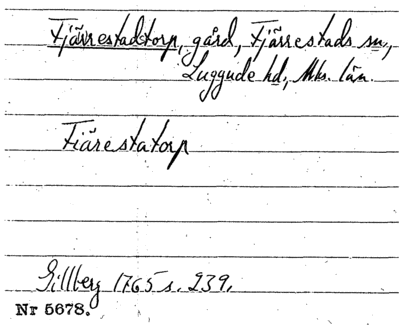 Fjärrestadtorp, gård, Fjärrestads sn.,
Luggude hd., Mhs. län.
Fiärestatorp
Gillberg 1765 s. 239.
Nr 5678.